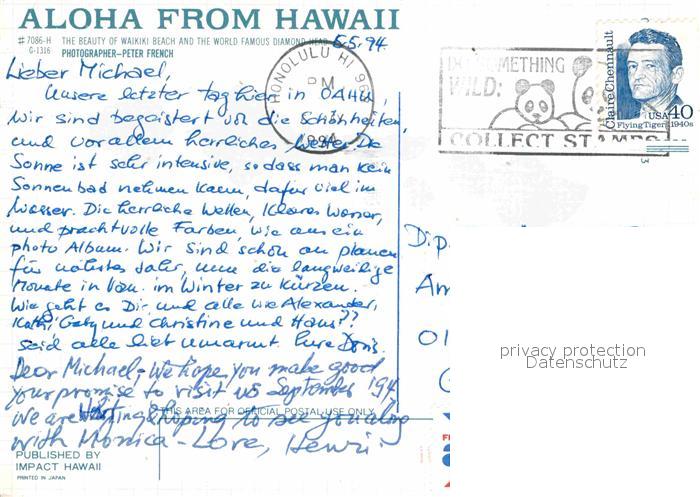 ALOHA FROM HAWAII
#7086-H THE BEAUTY OF WAIKIKI BEACH AND THE WORLD FAMOUS DIAMOND HEAD
G-1316 PHOTOGRAPHER-PETER FRENCH
5.5.94
Lieber Michael,
Unsere letzter tag hier in OAHU,
wir sind begeistert von die Schönheiten
und vor allem herrliches Wetter Die
Sonne ist sehr intensive, so dass man kein
Sonnenbad nehmen kann, dafür viel im
Wasser. Die herrliche Wellen, Klares Wasser,
und prachtvolle Farben, wie aus ein
photo Album. Wir sind schon am planen
für nächstes Jahr, um die langweilige
Monate in Van. im Winter zu Kürzen.
Wie geht es Dir und alle wie Alexander,
Kathi, Gaby und Christine und Hans??
seid alle liebst umarmt Eure Doris.
Dear Michael, We hope you make good
your promise to visit us September '94.
We are waiting & hoping to see you along
with Monica - Love, Henri
THIS AREA FOR OFFICIAL POSTAL USE ONLY
PUBLISHED BY
IMPACT HAWAII
PRINTED IN JAPAN
HONOLULU HI 96
PM
1994
DO SOMETHING
WILD:
COLLECT STAMPS
Claire Chennault
USA 40
Flying Tiger, 1940s
Dip
Am
01
privacy protection
Datenschutz